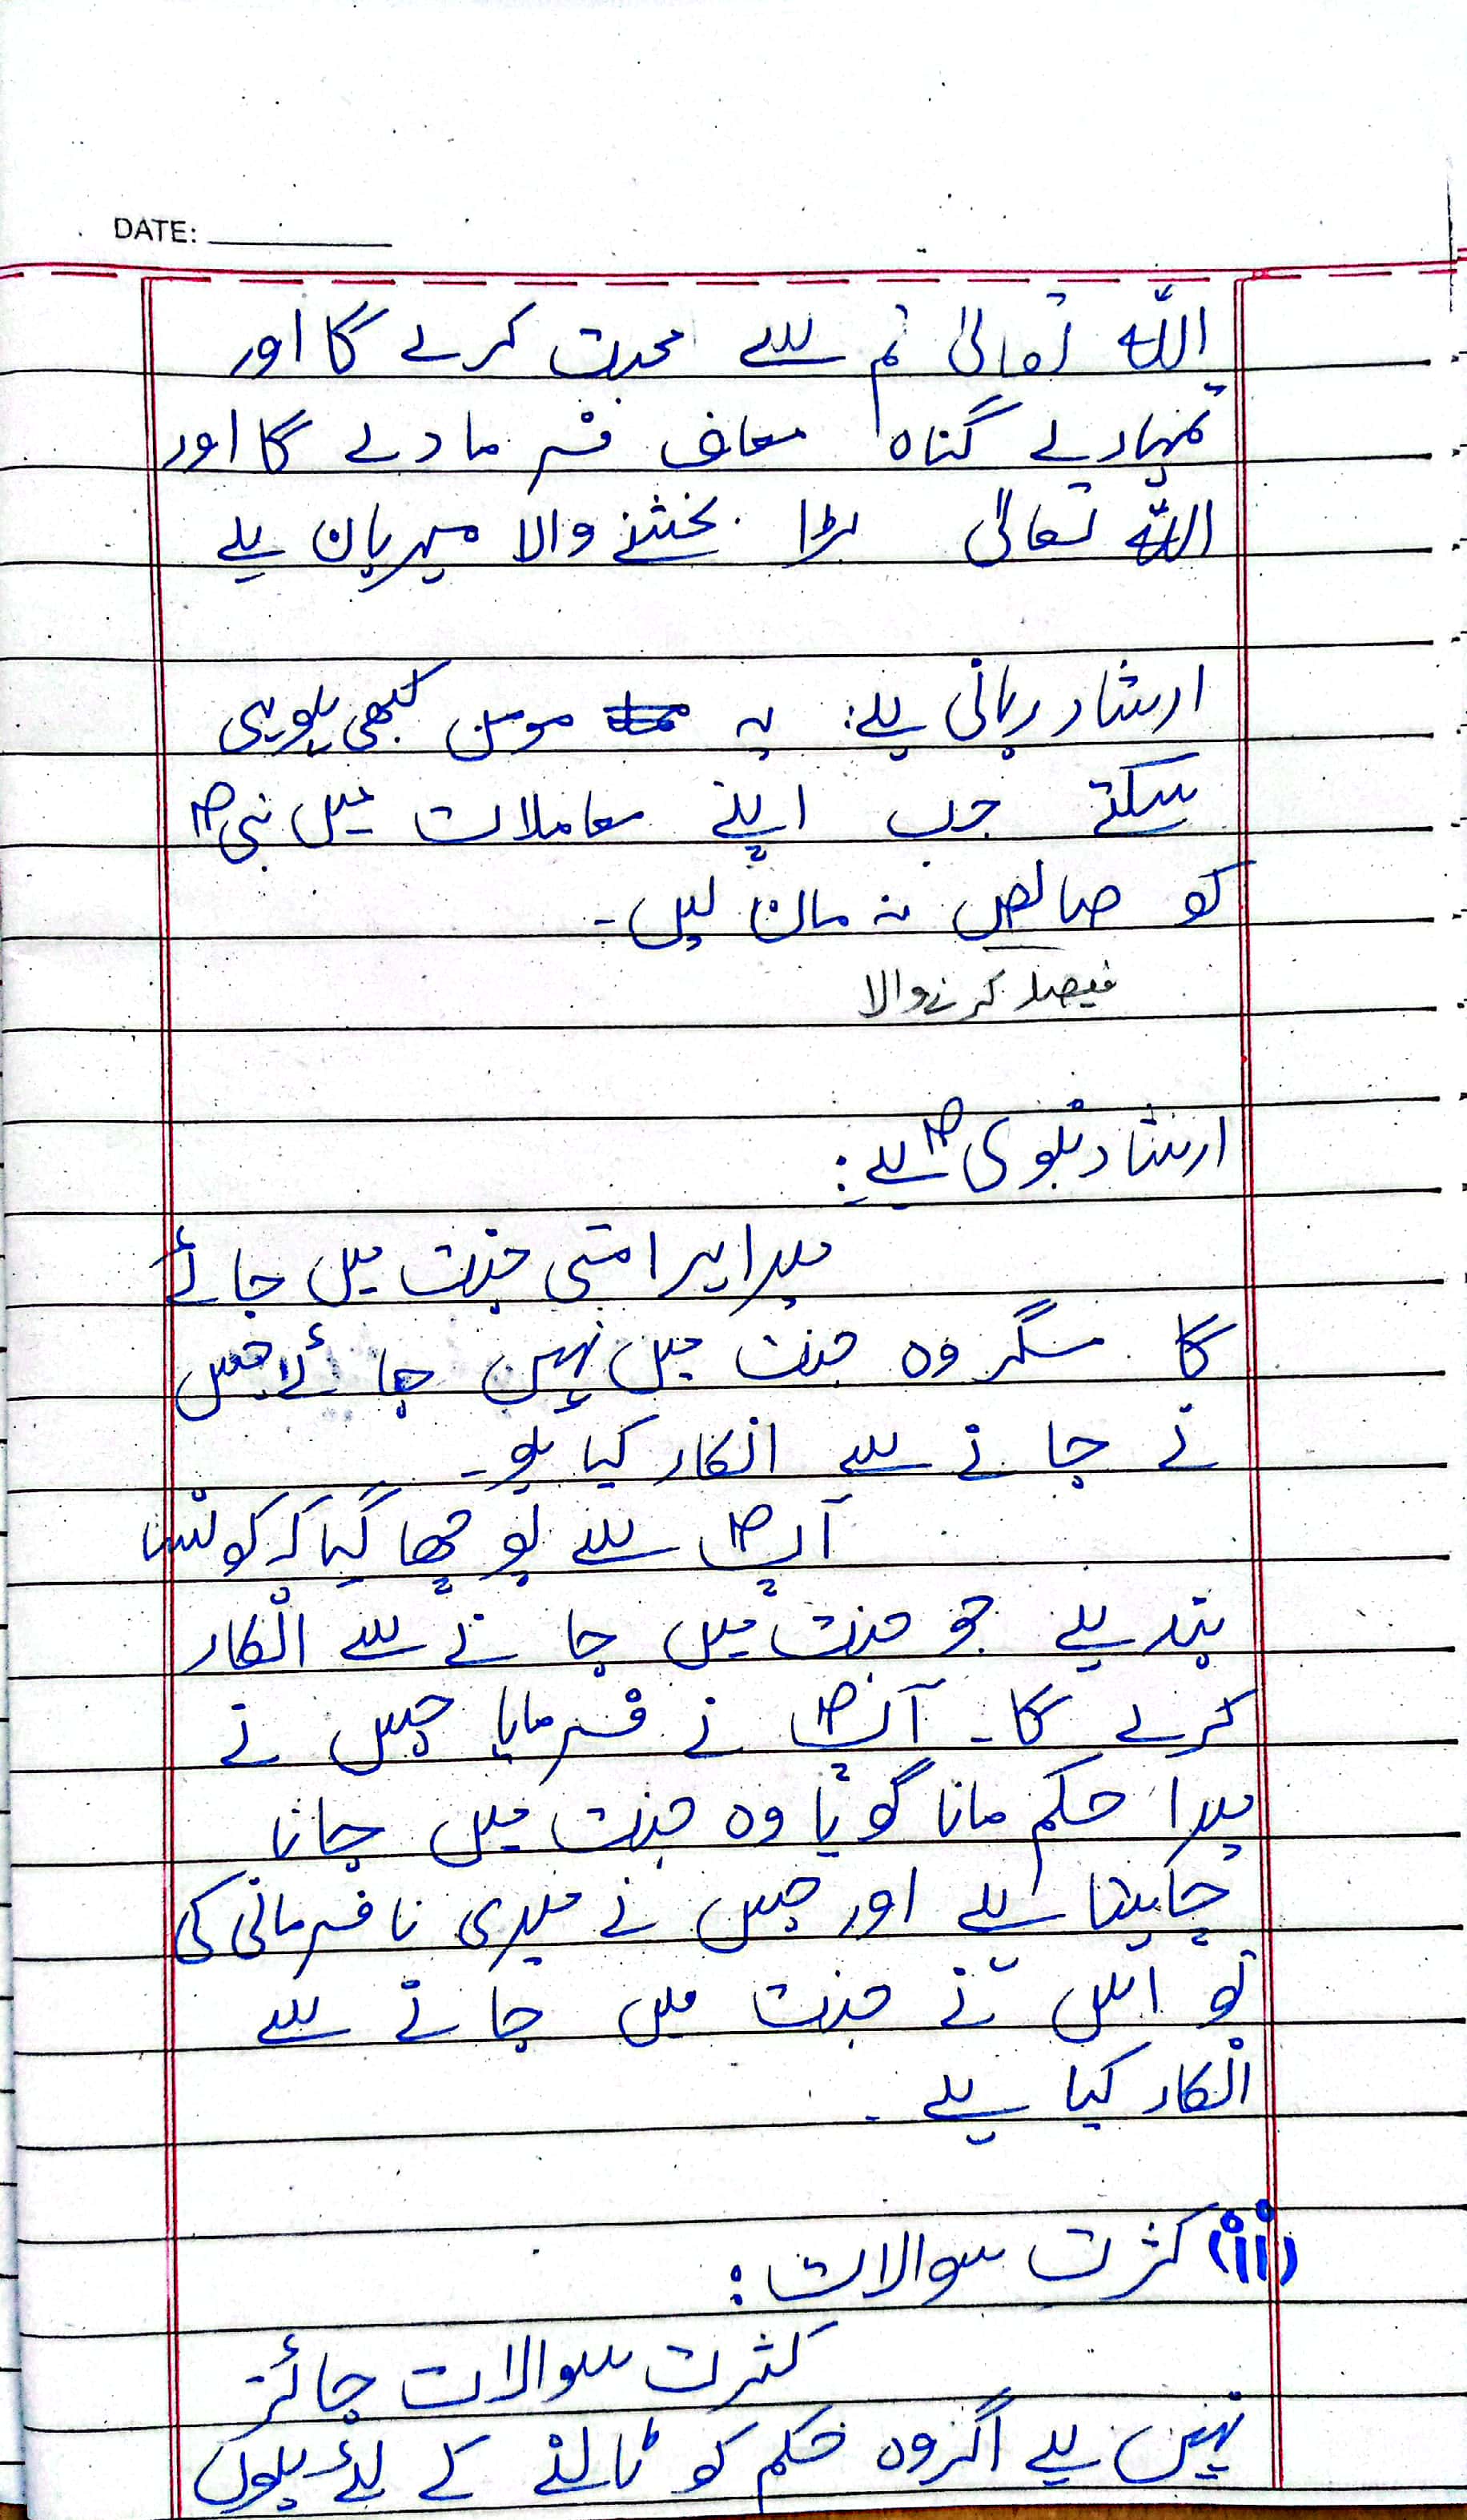 DATE:
اللہ تعالیٰ تم سے محبت کرے گا اور
تمہارے گناہ معاف فرما دے گا اور
اللہ تعالیٰ بڑا بخشنے والا مہربان ہے
ارشاد ربانی ہے: یہ مومن کبھی ہو ہی
سکتے جب اپنے معاملات میں نبیؐ
کو صالص نہ مان لیں۔
فیصلہ کرنے والا
ارشاد نبویؐ ہے:
میرا ہر امتی جنت میں جائے
گا مگر وہ جنت میں نہیں جائے جس
نے جانے سے انکار کیا ہو۔
آپؐ سے پوچھا گیا کہ کونسا
بندہ ہے جو جنت میں جانے سے انکار
کرے گا۔ آپؐ نے فرمایا جس نے
میرا حکم مانا گویا وہ جنت میں جانا
چاہتا ہے اور جس نے میری نافرمانی کی
تو اس نے جنت میں جانے سے
انکار کیا ہے۔
(ii) کثرت سوالات:
کثرت سوالات جائز
نہیں ہے اگر وہ حکم کو ٹالنے کے لئے ہوں